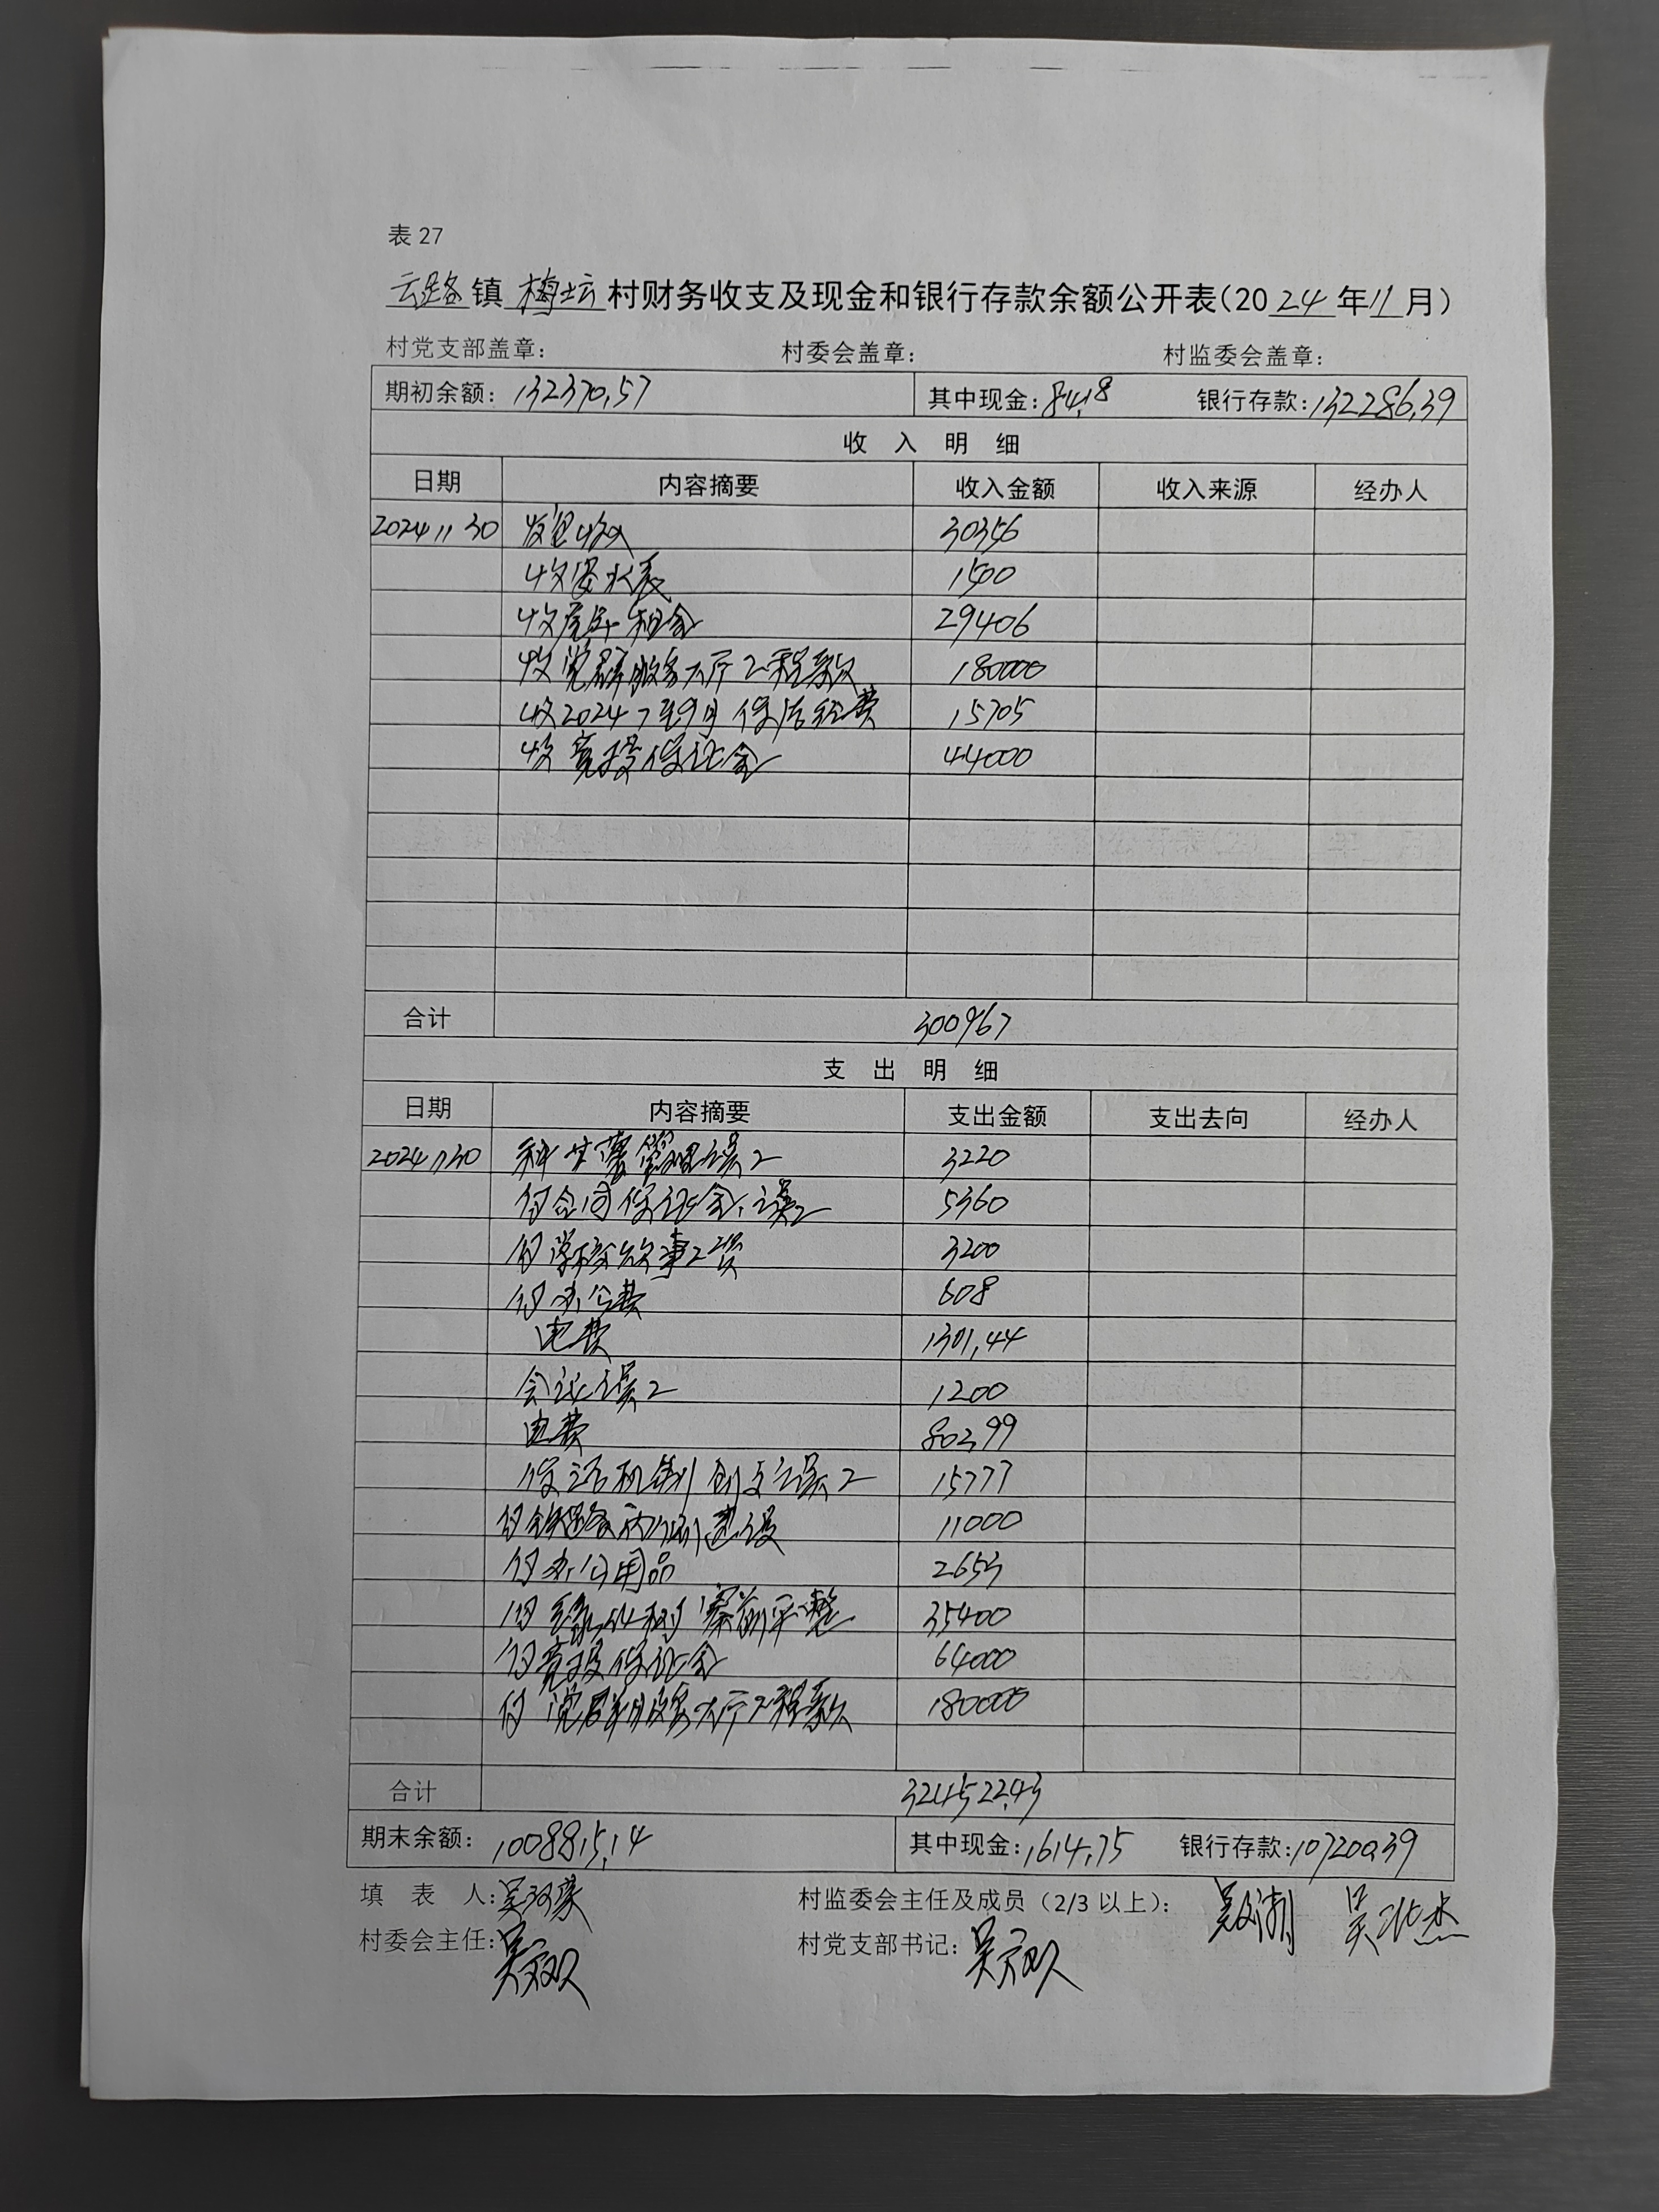 表 27
云路镇 梅坛 村财务收支及现金和银行存款余额公开表(2024年11月)
村党支部盖章: 村委会盖章: 村监委会盖章:
期初余额: 132370.57 其中现金: 84.18 银行存款: 132286.39
收 入 明 细
日期 内容摘要 收入金额 收入来源 经办人
2024 11 30 发包收入 30356
收 水表 1500
收 租金 29406
收党群服务大厅工程款 180000
收2024 7至9月保洁经费 15705
收竞投保证金 44000
合计 300967
支 出 明 细
日期 内容摘要 支出金额 支出去向 经办人
2024 11 30 管理误工 3220
付合同保证金、误工 5360
付学校炊事工资 3200
付办公费 608
电费 1301.44
会议误工 1200
电费 802.99
保洁 误工 15777
付铁路两侧建设 11000
付办公用品 2653
付 寨前平整 35400
付竞投保证金 64000
付党群服务大厅工程款 180000
合计 324522.43
期末余额: 108815.14 其中现金: 1614.75 银行存款: 107200.39
填 表 人: 吴 村监委会主任及成员(2/3 以上): 吴
村委会主任: 吴 村党支部书记: 吴